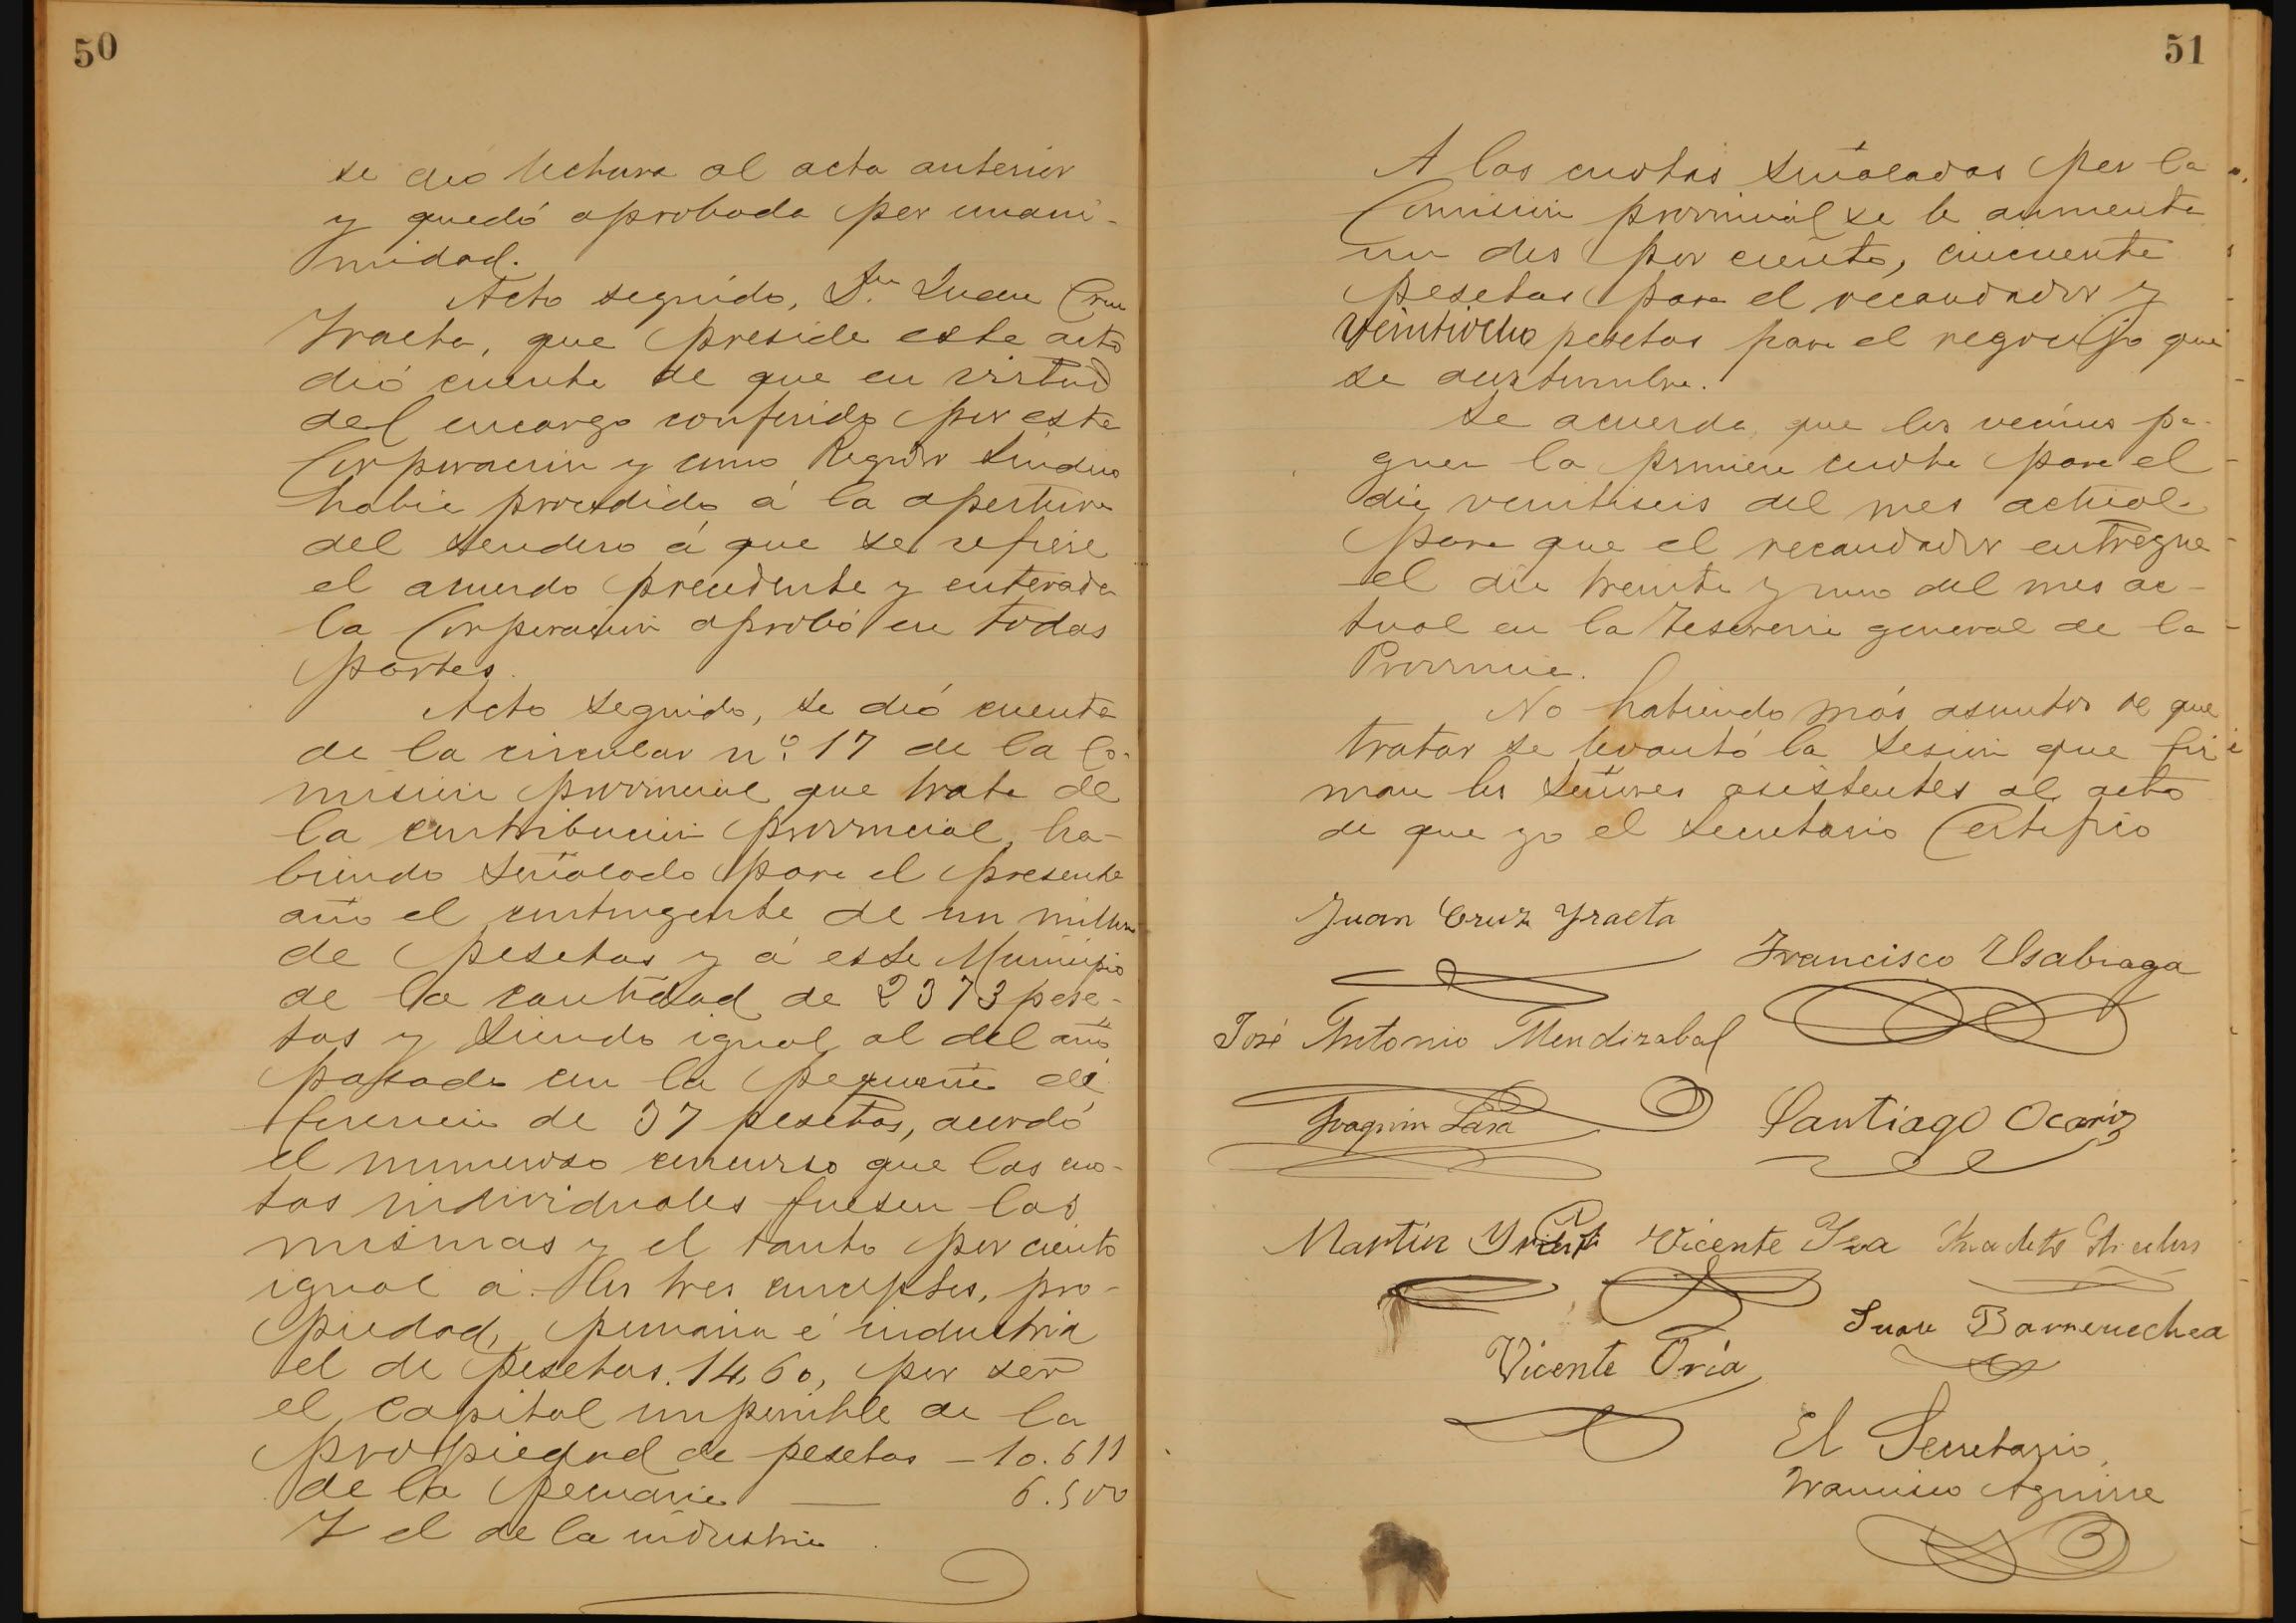 50
se dió lectura al acta anterior
y quedó aprobada por unani-
midad.
Acto seguido, Dn. Juan Cruz
Yraeta, que preside este acto
dió cuenta de que en virtud
del encargo conferido por esta
Corporación y como Regidor Síndico
había procedido á la apertura
del sendero á que se refiere
el acuerdo precedente y enterada
la Corporación aprobó en todas
partes.
Acto seguido, se dió cuenta
de la circular nº. 17 de la Co-
misión provincial que trata de
la contribución provincial, ha-
biendo señalado para el presente
año el contingente de un millon
de pesetas y á este Municipio
de la cantidad de 2373 pese-
tas y siendo igual al del año
pasado con la pequeña di
ferencia de 37 pesetas, acordó
el numeroso concurso que las cuo-
tas individuales fuesen las
mismas y el tanto por ciento
igual á los tres conceptos, pro-
piedad, pecuaria é industria
el de pesetas 14,60, por ser
el capital imponible de la
propiedad de pesetas — 10.611
de la pecuaria — 6.500
Y el de la industria
51
A las cuotas señaladas por la
Comisión provincial se le aumenta
un dos por ciento, cincuenta
pesetas para el recaudador y
veintiocho pesetas para el regocijo que
se acostumbra.
Se acuerda que los vecinos pa-
guen la primera cuota para el
día veintiseis del mes actual
para que el recaudador entregue
el día treinta y uno del mes ac-
tual en la Tesorería general de la
Provincia.
No habiendo más asuntos de que
tratar se levantó la sesión que fir
man los Señores asistentes al acto
de que yo el Secretario Certifico
Juan Cruz Yraeta
Francisco Usabiaga
José Antonio Mendizabal
Joaquin Lasa
Santiago Ocariz
Martin Vicente
Juan Barrenechea
Vicente Oria
El Secretario,
Francisco Aguirre